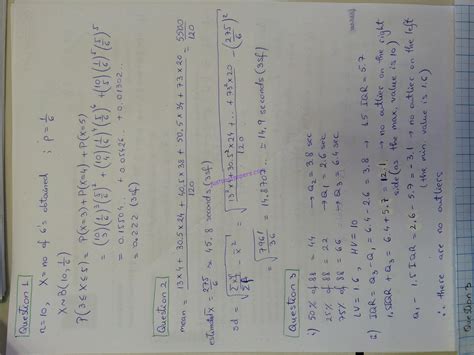 Question 1
n=10, X= no of 6's obtained ; p=1/6
X~B(10, 1/6)
P(3≤X≤5) = P(X=3) + P(X=4) + P(X=5)
= (10 3)(1/6)^3(5/6)^7 + (10 4)(1/6)^4(5/6)^6 + (10 5)(1/6)^5(5/6)^5
= 0.15504... + 0.05426 + 0.01302...
= 0.222 (3sf)
Question 2
mean = 13×4 + 30.5×24 + 40.5×38 + 50.5×34 + 73×20 / 120 = 5500/120
estimated x̄ = 275/6 ≈ 45.8 seconds (3sf)
sd = √(Σx²f/Σf − x̄²) = √(13²×4 + 30.5²×24 + ... + 73²×20 / 120 − (275/6)²)
= √(7961/36) = 14.8707... = 14.9 seconds (3sf)
Question 3
i) 50% of 88 = 44 → Q₂ = 3.8 sec
25% of 88 = 22 → Q₁ = 2.6 sec
75% of 88 = 66 → Q₃ = 6.4 sec
LV = 1.6, HV = 10
ii) IQR = Q₃ - Q₁ = 6.4 - 2.6 = 3.8 → 1.5 IQR = 5.7
1.5IQR + Q₃ = 6.4 + 5.7 = 12.1 → no outlier on the right
side (as the max. value is 10)
Q₁ - 1.5IQR = 2.6 - 5.7 = -3.1 → no outlier on the left
(the min. value is 1.6)
∴ there are no outliers
Question 3